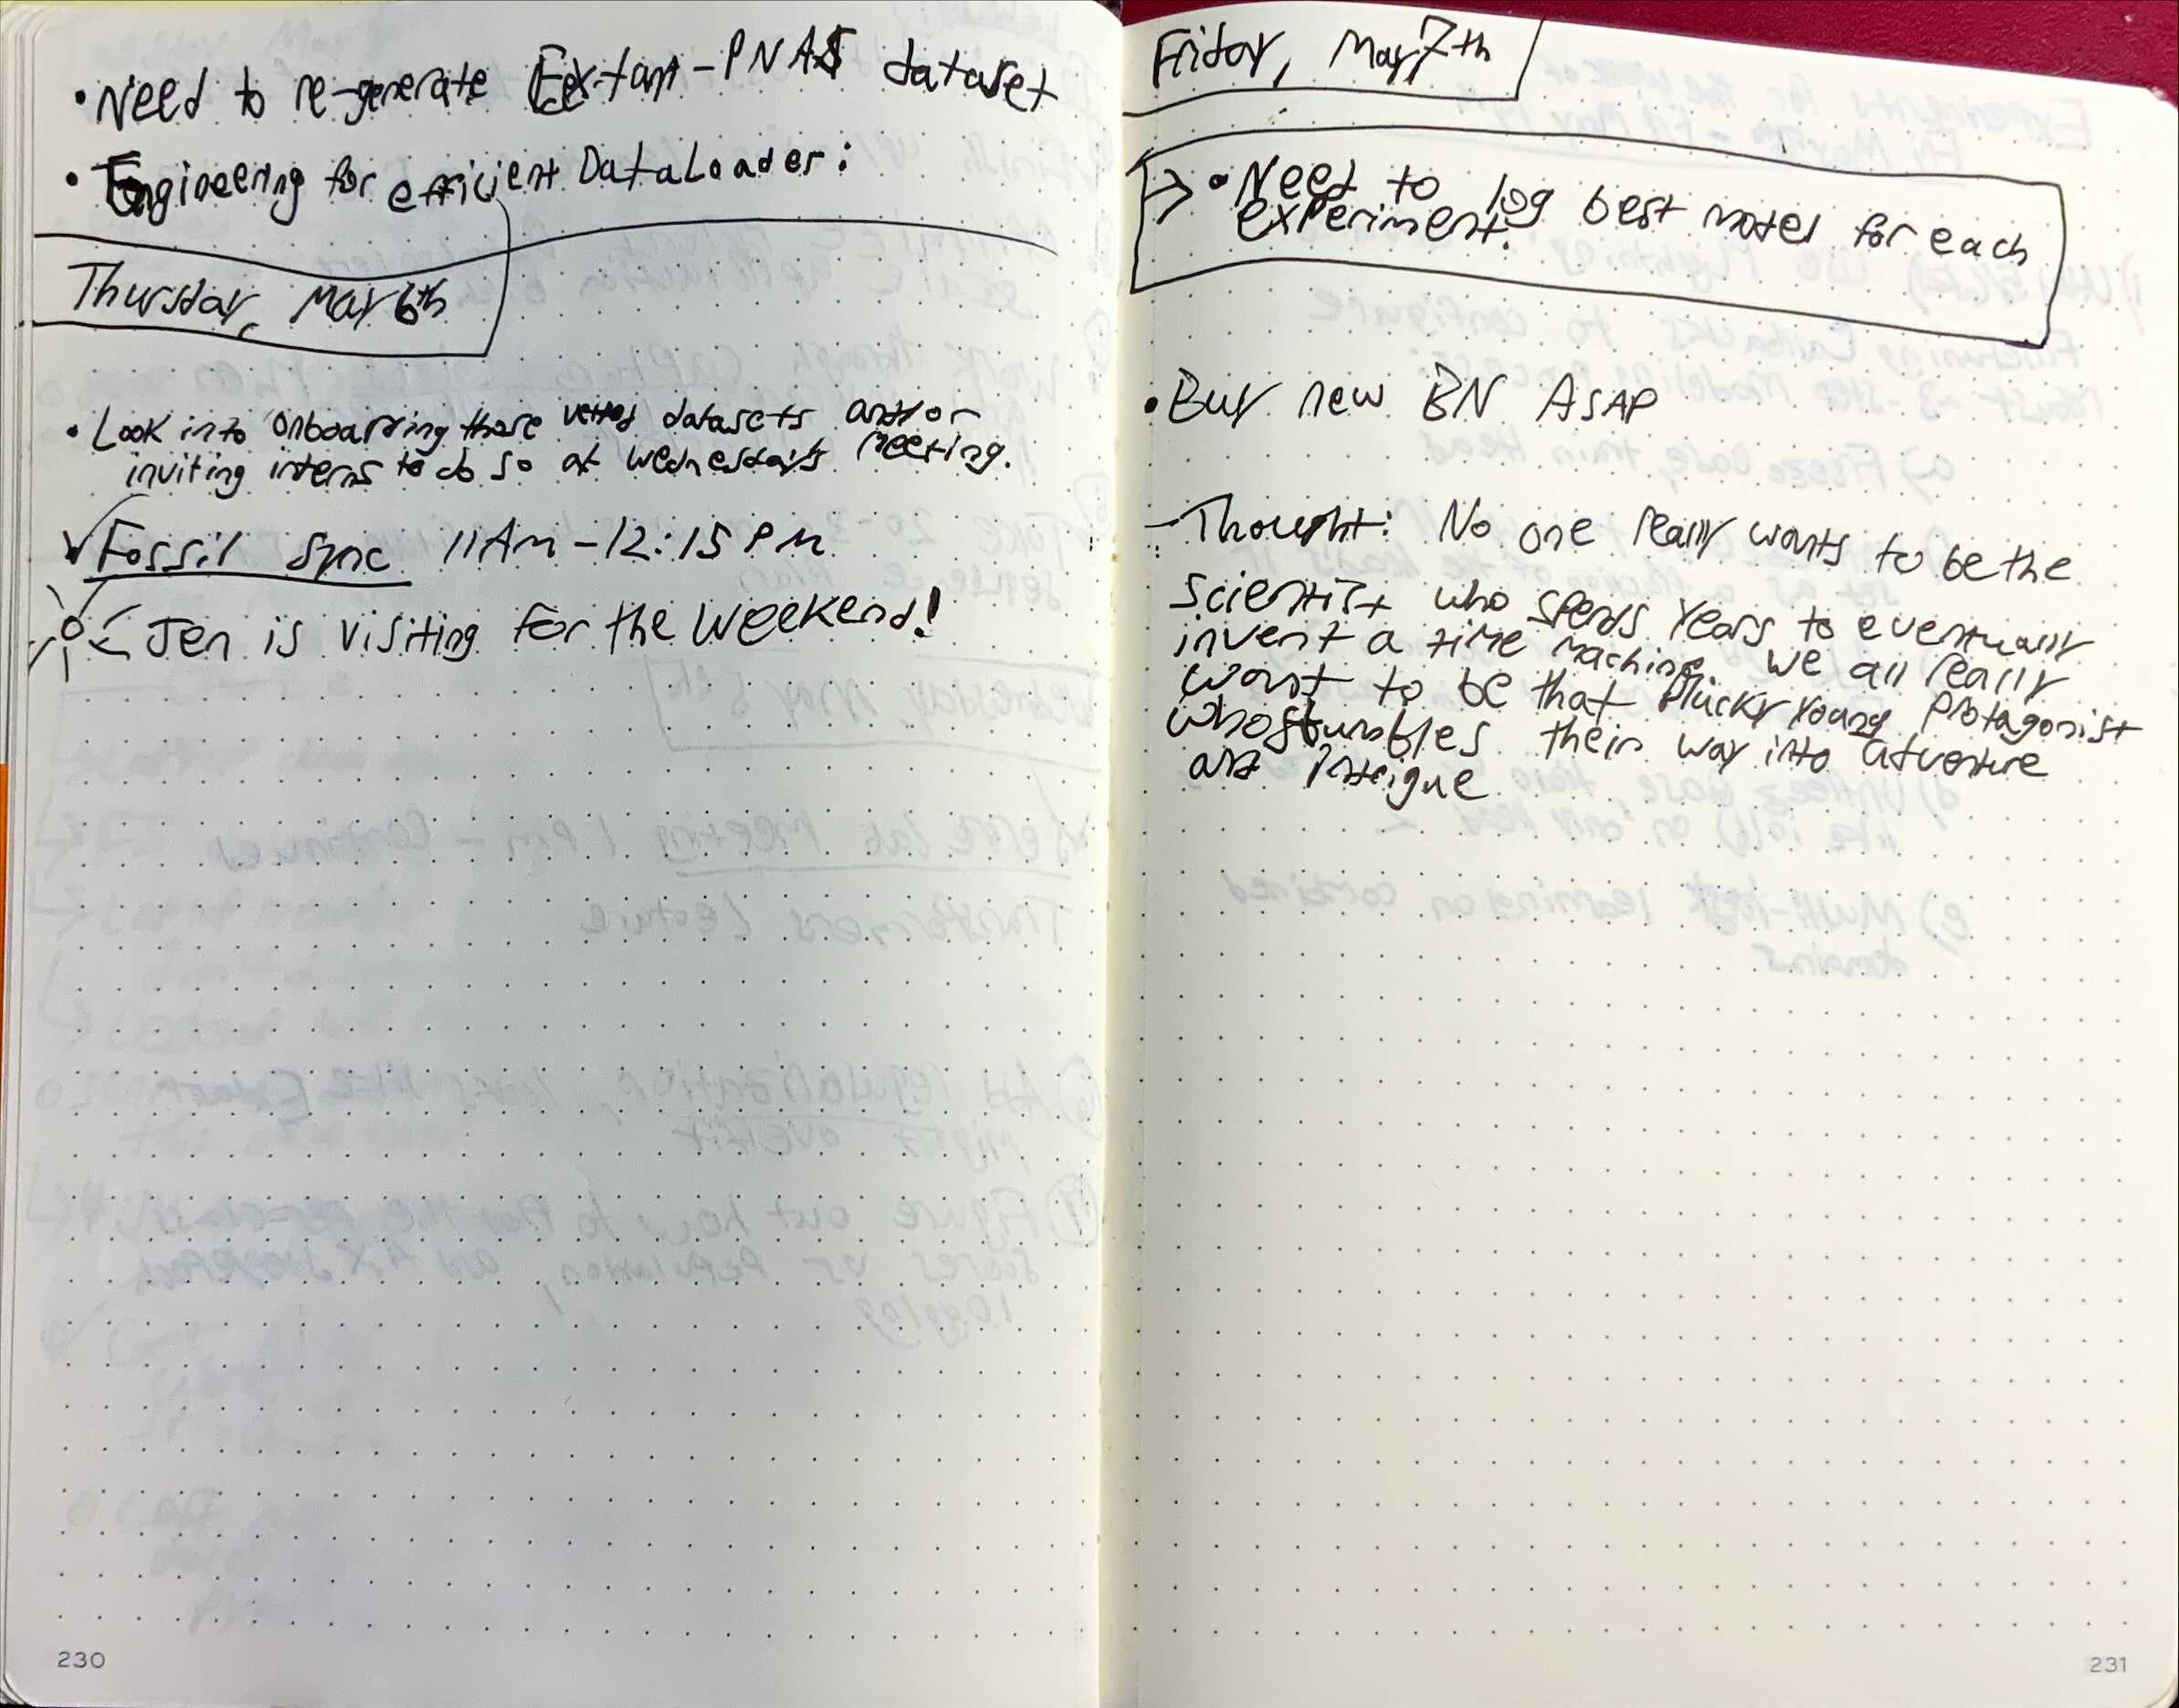 • Need to re-generate Extant-PNAS dataset
• Engineering for efficient DataLoader:
Thursday, May 6th
• Look into onboarding these vetted datasets and/or
inviting interns to do so at Wednesday's meeting.
Fossil Sync 11AM-12:15PM
Jen is visiting for the Weekend!
230
Friday, May 7th
→ • Need to log best model for each
experiment.
• Buy new BN ASAP
- Thought: No one really wants to be the
scientist who spends years to eventually
invent a time machine. We all really
want to be that plucky young protagonist
who stumbles their way into adventure
and intrigue
231